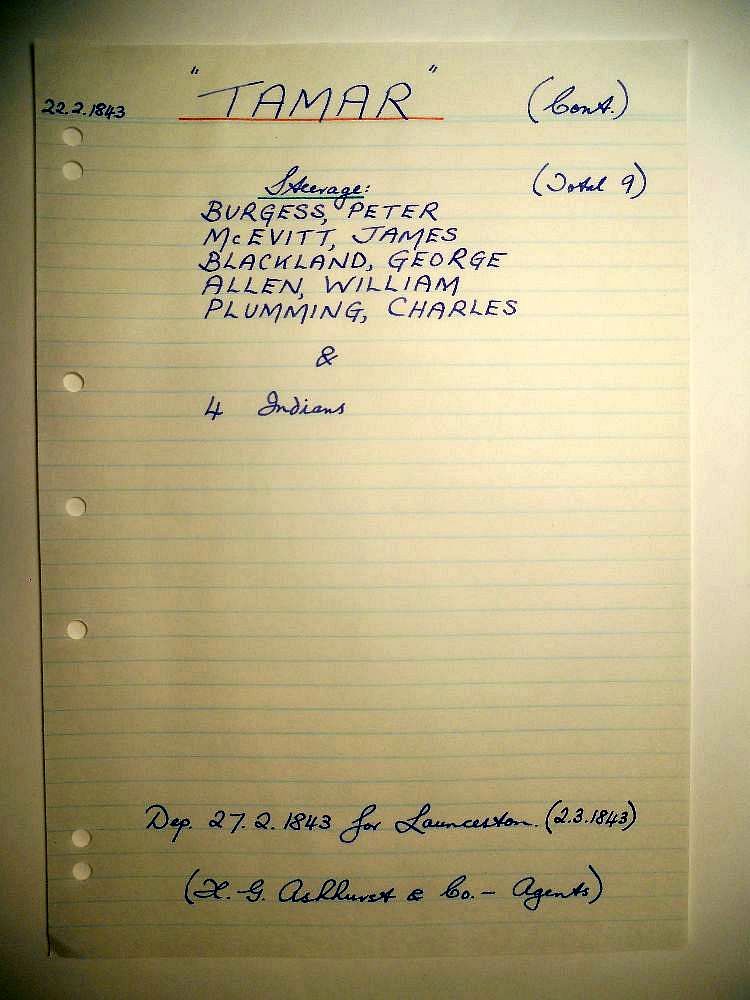 22.2.1843 "TAMAR" (Cont.)
Steerage: (Total 9)
BURGESS, PETER
McEVITT, JAMES
BLACKLAND, GEORGE
ALLEN, WILLIAM
PLUMMING, CHARLES
&
4 Indians
Dep. 27.2.1843 for Launceston. (2.3.1843)
(H. G. Ashhurst & Co. - Agents)